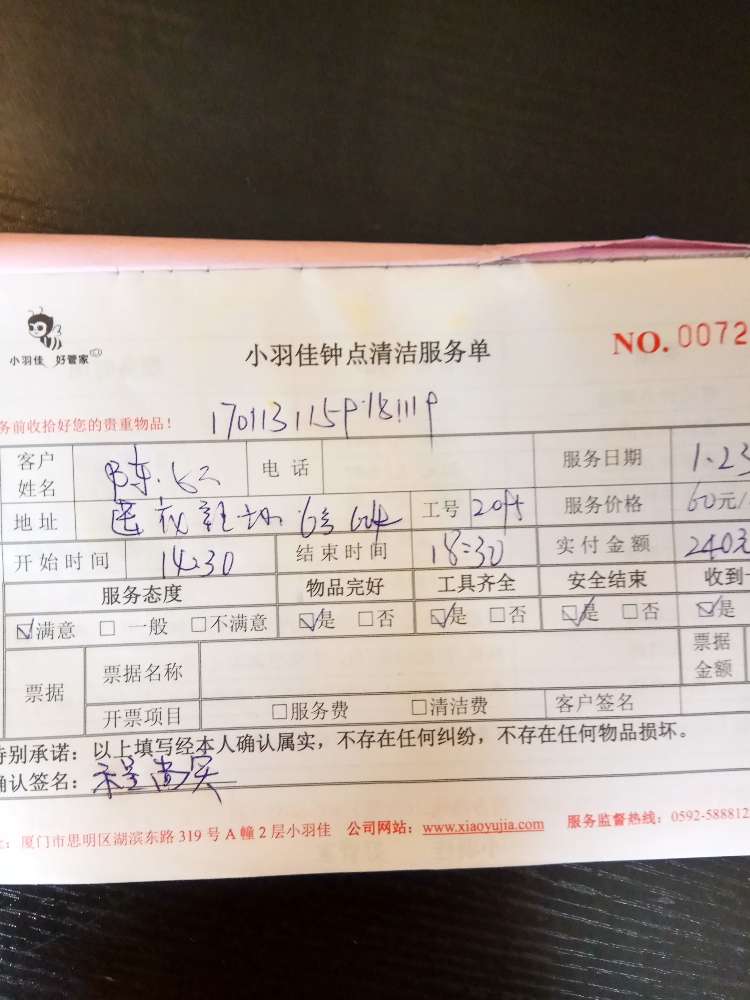 小羽佳 好管家
小羽佳钟点清洁服务单
NO. 0072
务前收拾好您的贵重物品！
客户姓名 电话 服务日期 1.23
地址 工号 服务价格 60元/
开始时间 14:30 结束时间 18:30 实付金额 240元
服务态度 物品完好 工具齐全 安全结束 收到
☑满意 □ 一般 □不满意 ☑是 □否 ☑是 □否 ☑是 □否 ☑是
票据 票据名称 票据金额
开票项目 □服务费 □清洁费 客户签名
特别承诺：以上填写经本人确认属实，不存在任何纠纷，不存在任何物品损坏。
确认签名：
：厦门市思明区湖滨东路 319 号 A 幢 2 层小羽佳 公司网站：www.xiaoyujia.com 服务监督热线：0592-588812